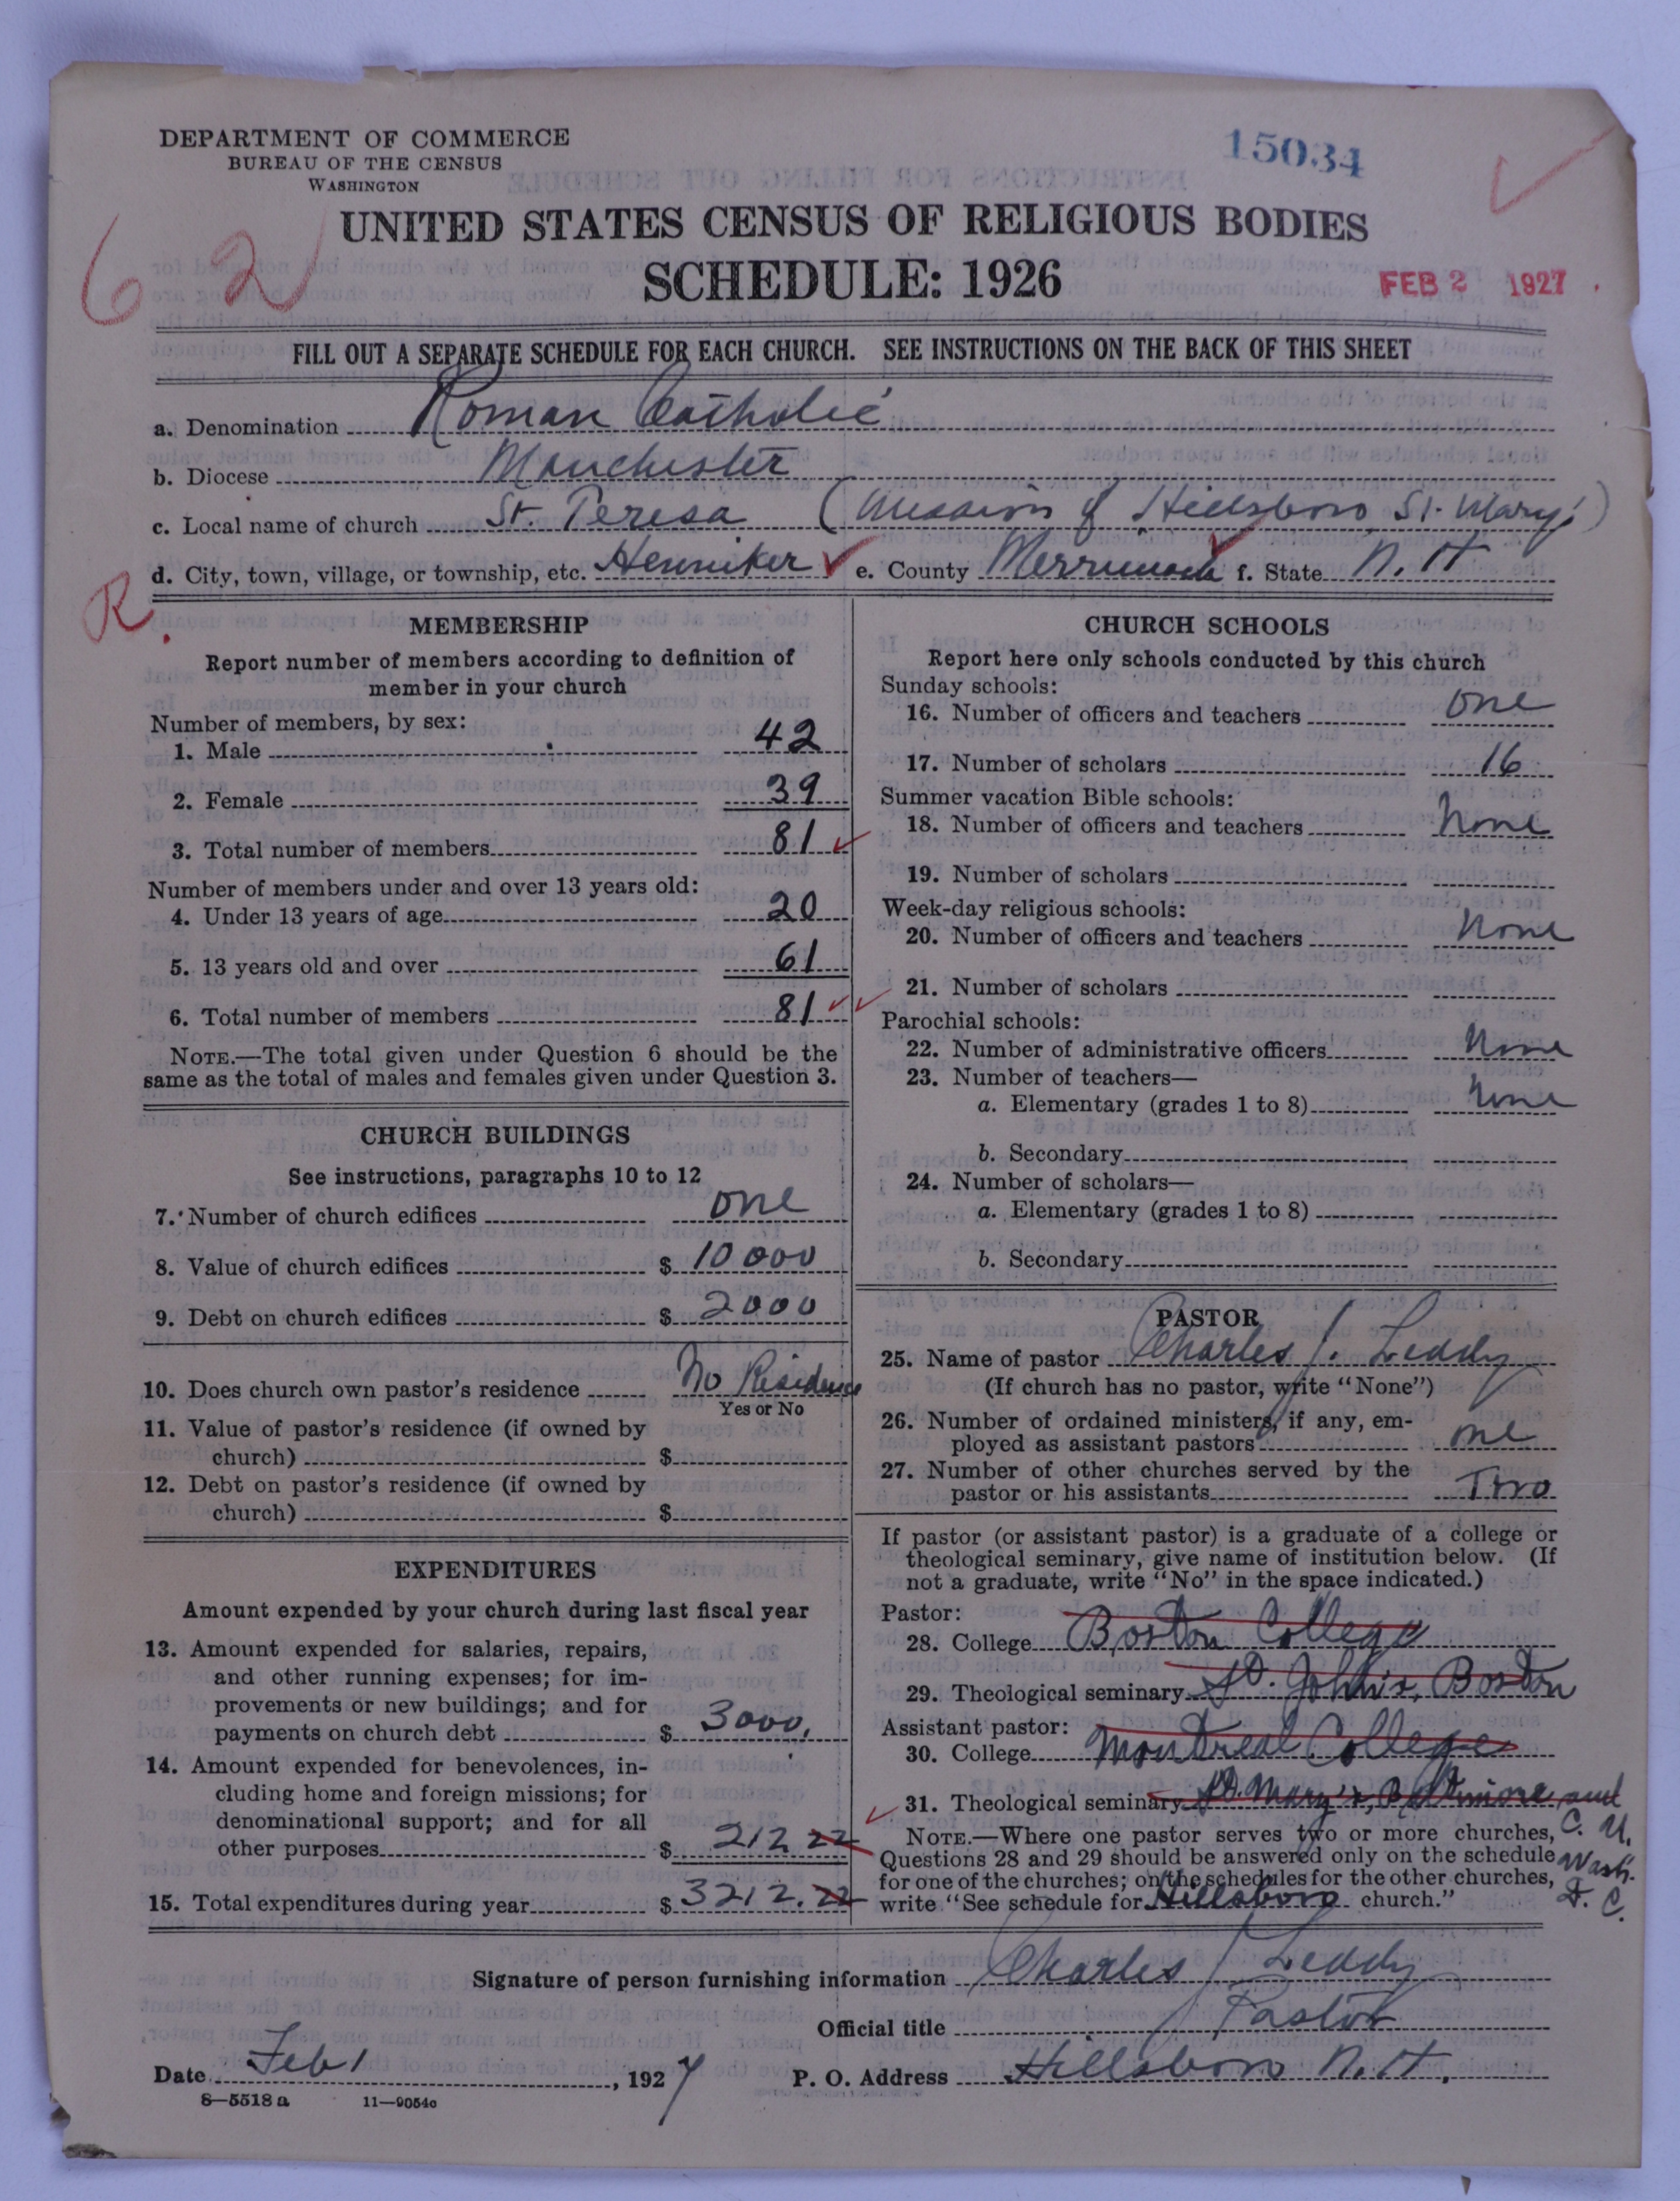 DEPARTMENT OF COMMERCE
BUREAU OF THE CENSUS
WASHINGTON
15034
UNITED STATES CENSUS OF RELIGIOUS BODIES
62
SCHEDULE: 1926
FEB 2 1927
FILL OUT A SEPARATE SCHEDULE FOR EACH CHURCH. SEE INSTRUCTIONS ON THE BACK OF THIS SHEET
a. Denomination Roman Catholic
b. Diocese Manchester
c. Local name of church St. Teresa (Mission of Hillsboro St. Mary's)
d. City, town, village, or township, etc. Henniker e. County Merrimack f. State N. H
R.
MEMBERSHIP
Report number of members according to definition of
member in your church
Number of members, by sex:
1. Male 42
2. Female 39
3. Total number of members 81
Number of members under and over 13 years old:
4. Under 13 years of age 20
5. 13 years old and over 61
6. Total number of members 81
NOTE.—The total given under Question 6 should be the
same as the total of males and females given under Question 3.
CHURCH BUILDINGS
See instructions, paragraphs 10 to 12
7. Number of church edifices one
8. Value of church edifices $ 10000
9. Debt on church edifices $ 2000
10. Does church own pastor's residence No Residence
Yes or No
11. Value of pastor's residence (if owned by
church) $
12. Debt on pastor's residence (if owned by
church) $
EXPENDITURES
Amount expended by your church during last fiscal year
13. Amount expended for salaries, repairs,
and other running expenses; for im-
provements or new buildings; and for
payments on church debt $ 3000.
14. Amount expended for benevolences, in-
cluding home and foreign missions; for
denominational support; and for all
other purposes $ 212 22
15. Total expenditures during year $ 3212.22
CHURCH SCHOOLS
Report here only schools conducted by this church
Sunday schools:
16. Number of officers and teachers one
17. Number of scholars 16
Summer vacation Bible schools:
18. Number of officers and teachers None
19. Number of scholars
Week-day religious schools:
20. Number of officers and teachers None
21. Number of scholars
Parochial schools:
22. Number of administrative officers None
23. Number of teachers—
a. Elementary (grades 1 to 8) None
b. Secondary
24. Number of scholars—
a. Elementary (grades 1 to 8)
b. Secondary
PASTOR
25. Name of pastor Charles J. Leddy
(If church has no pastor, write "None")
26. Number of ordained ministers, if any, em-
ployed as assistant pastors one
27. Number of other churches served by the
pastor or his assistants Two
If pastor (or assistant pastor) is a graduate of a college or
theological seminary, give name of institution below. (If
not a graduate, write "No" in the space indicated.)
Pastor:
28. College Boston College
29. Theological seminary St. John's, Boston
Assistant pastor:
30. College Montreal College
31. Theological seminary St. Mary's, Baltimore and
C. U.
Wash.
D. C.
NOTE.—Where one pastor serves two or more churches,
Questions 28 and 29 should be answered only on the schedule
for one of the churches; on the schedules for the other churches,
write "See schedule for Hillsboro church."
Signature of person furnishing information Charles J Leddy
Official title Pastor
Date Feb 1, 1927 P. O. Address Hillsboro N. H.
8—5518 a 11—9054c